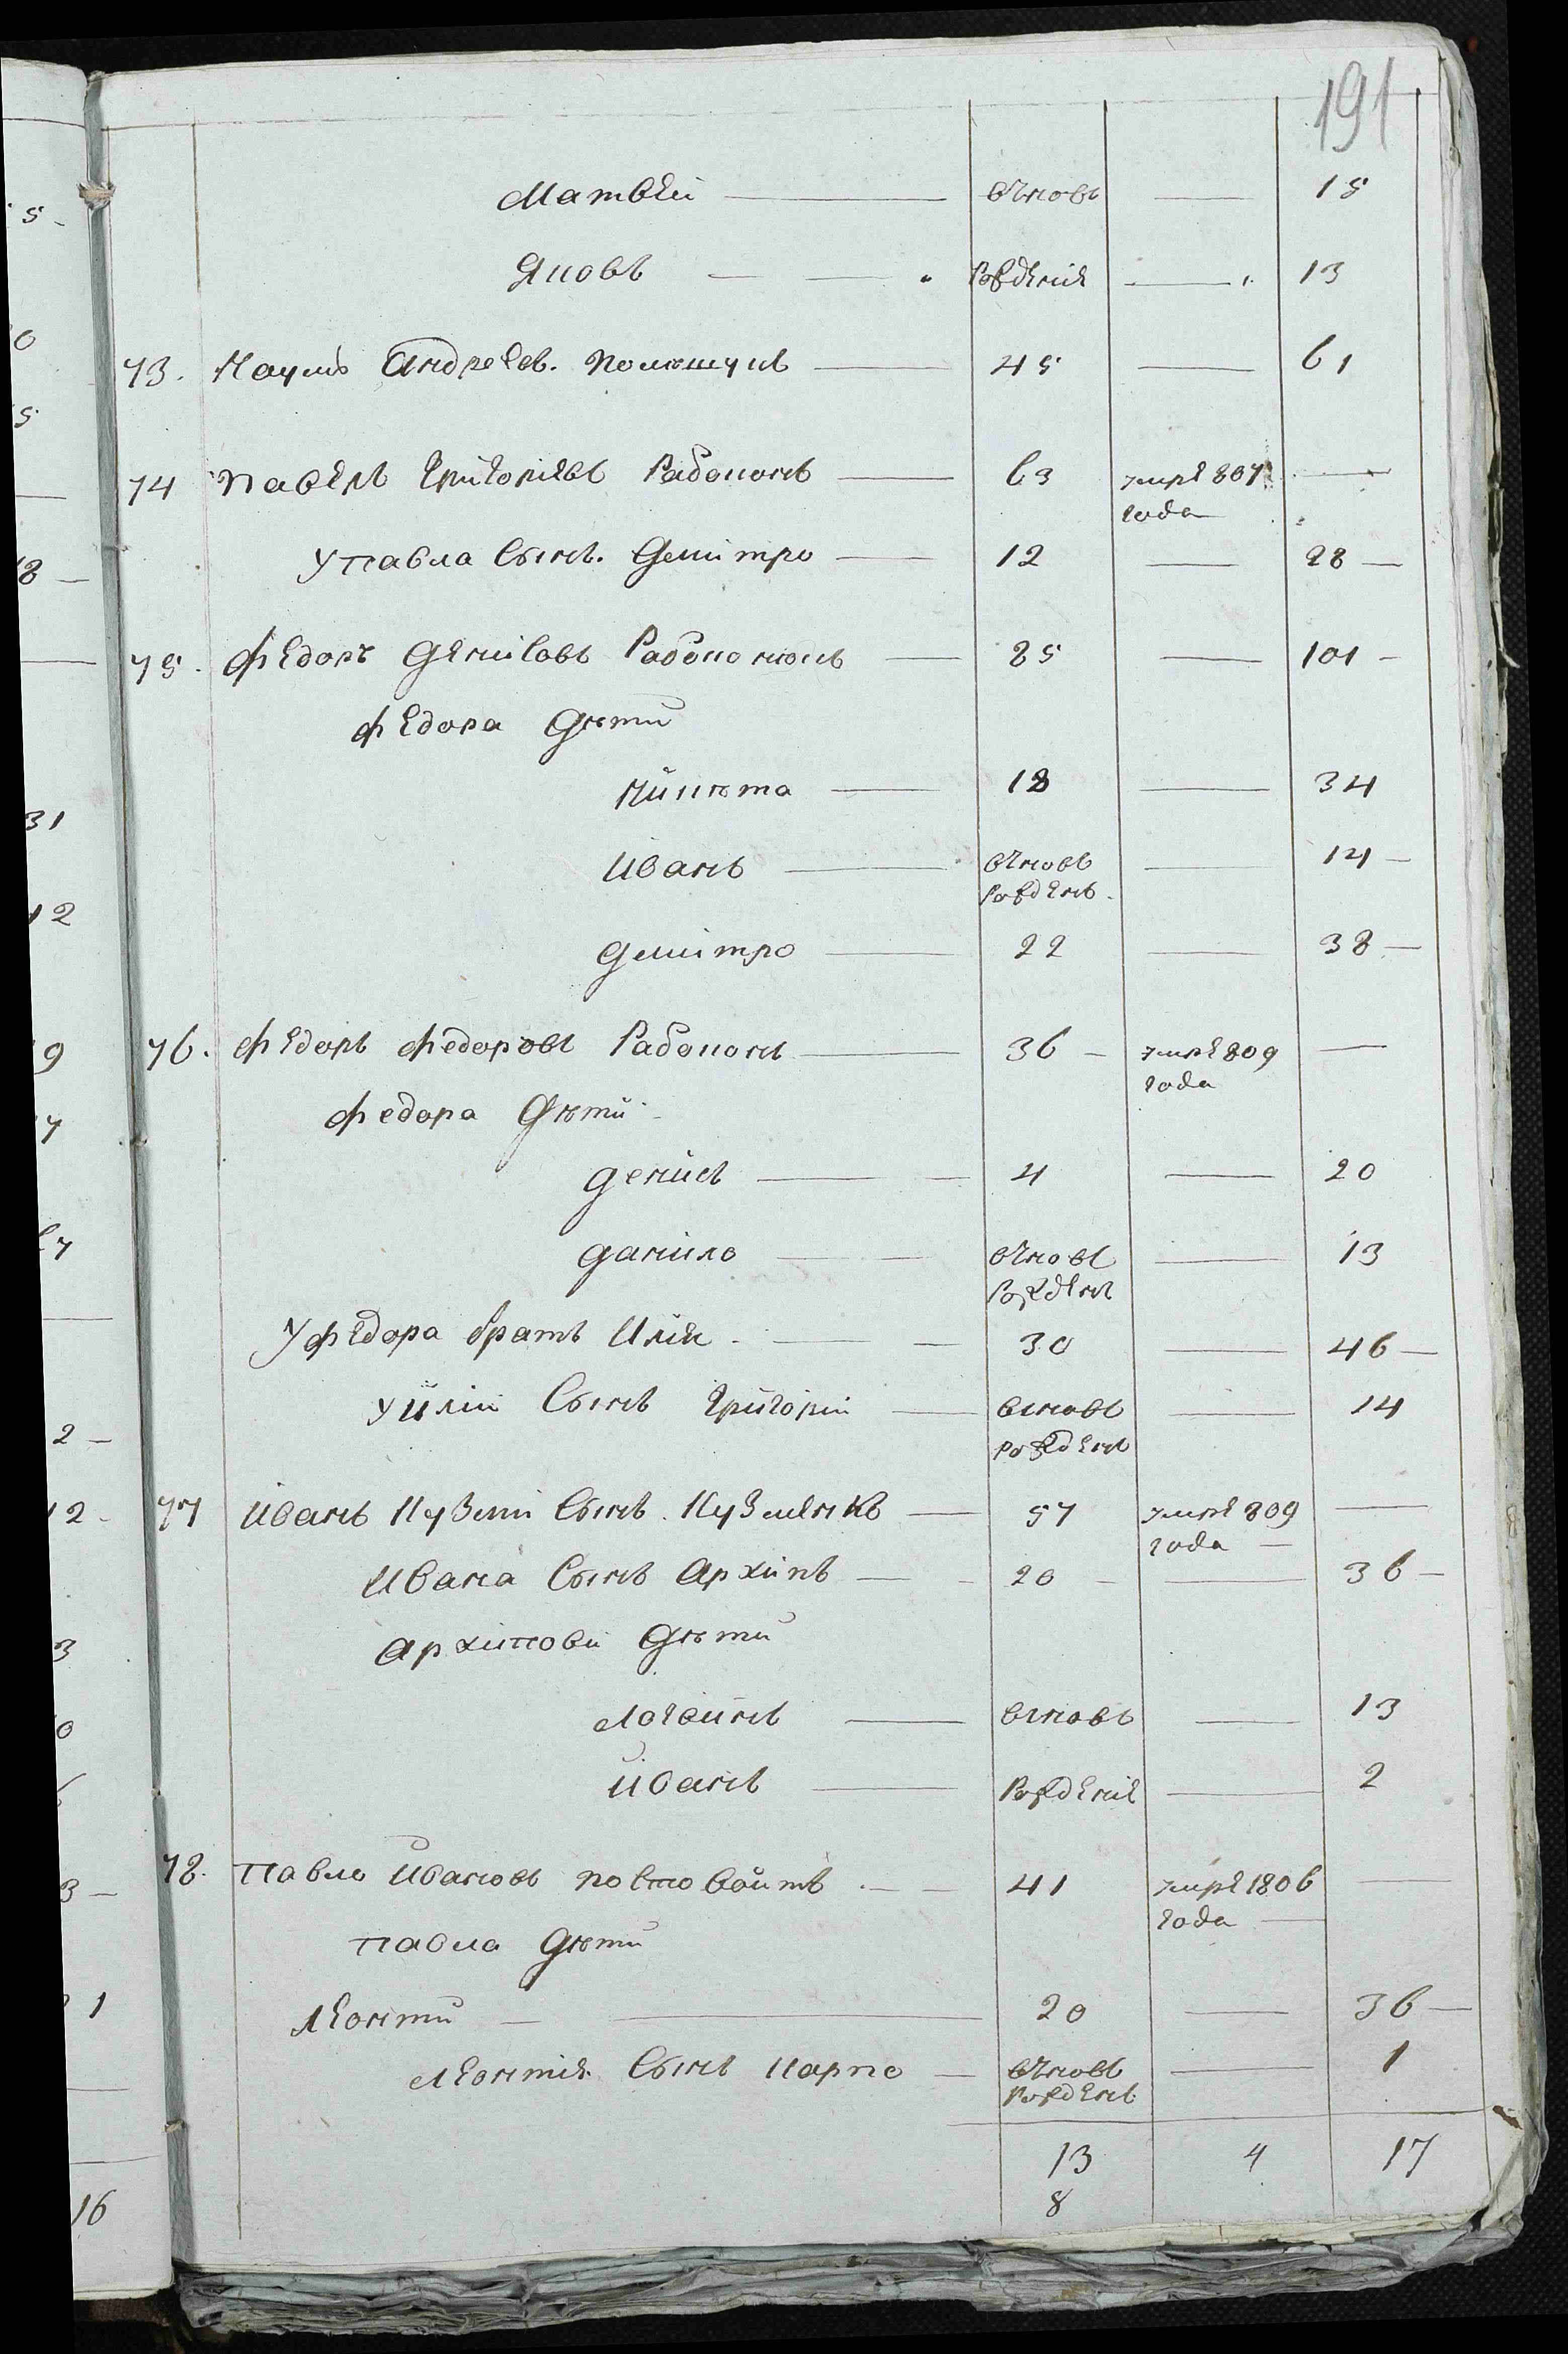 191
Матвей вновь 15
Яковъ рождение 13
73. Наумъ Андреевъ Полющукъ 45 61
74 Павелъ Григориевъ Рабоконь 63 умре 807 года
У Павла сынъ Демитро 12 28
75. Федоръ Денисовъ Рабоконюкъ 85 101
Федора дѣти
Никѣта 18 34
Иванъ вновь рожденъ 14
Демитро 22 38
76. Федоръ Федоровъ Рабоконь 36 умре 809 года
Федора дѣти
Денисъ 4 20
Данило вновь рожденъ 13
У Федора братъ Илия 30 46
У Илии сынъ Григорий вновь рожденъ 14
77 Иванъ Кузмин сынъ Кузменко 57 умре 809 года
Ивана сынъ Архипъ 20 36
Архипови дѣти
Логвинъ вновь 13
Иванъ рождение 2
78. Павло Ивановъ Повстовойтъ 41 умре 1806 года
Павла дѣти
Леонтий 20 36
Леонтия сынъ Карпо вновь рожденъ 1
13 4 17
8